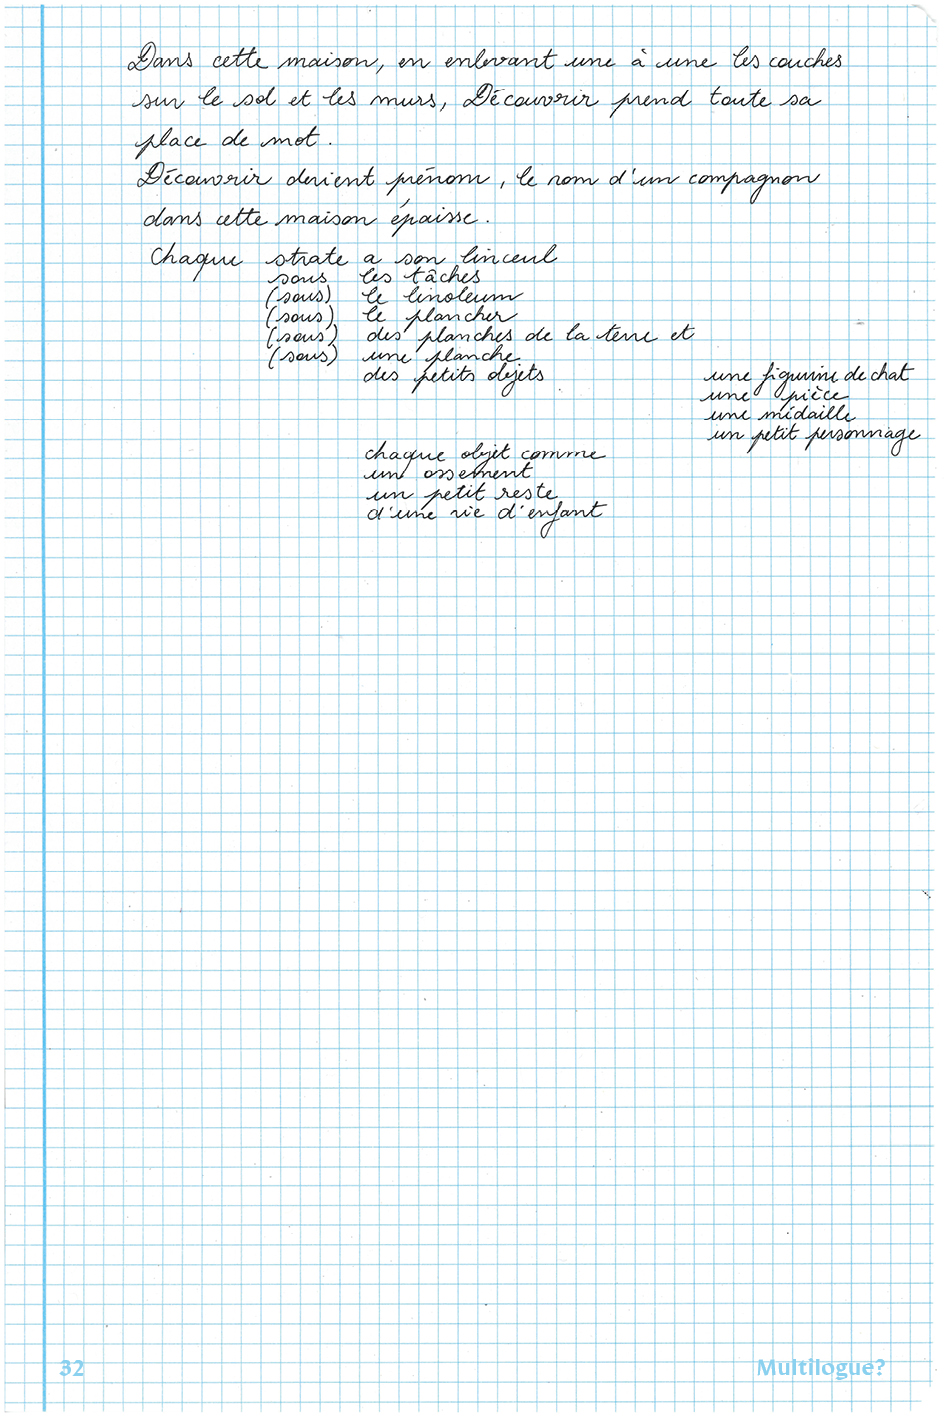 Dans cette maison, en enlevant une à une les couches
sur le sol et les murs, Découvrir prend toute sa
place de mot.
Découvrir devient prénom, le nom d'un compagnon
dans cette maison épaisse.
Chaque strate a son linceul
sous les tâches
(sous) le linoleum
(sous) le plancher
(sous) des planches de la terre et
(sous) une planche
des petits objets une figurine de chat
une pièce
une médaille
un petit personnage
chaque objet comme
un ossement
un petit reste
d'une vie d'enfant
32 Multilogue?